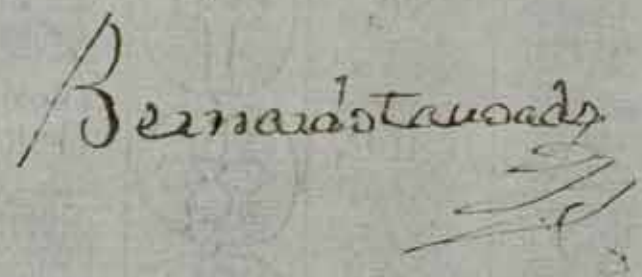 Bernardo Tauoada